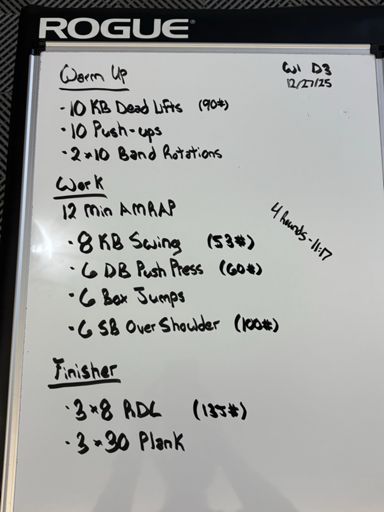 ROGUE®
Warm Up
W1 D3
12/27/25
- 10 KB Dead Lifts (90#)
- 10 Push-ups
- 2x10 Band Rotations
Work
12 Min AMRAP
4 Rounds - 11:17
- 8 KB Swing (53#)
- 6 DB Push Press (60#)
- 6 Box Jumps
- 6 SB Over Shoulder (100#)
Finisher
- 3x8 RDL (135#)
- 3x30 Plank